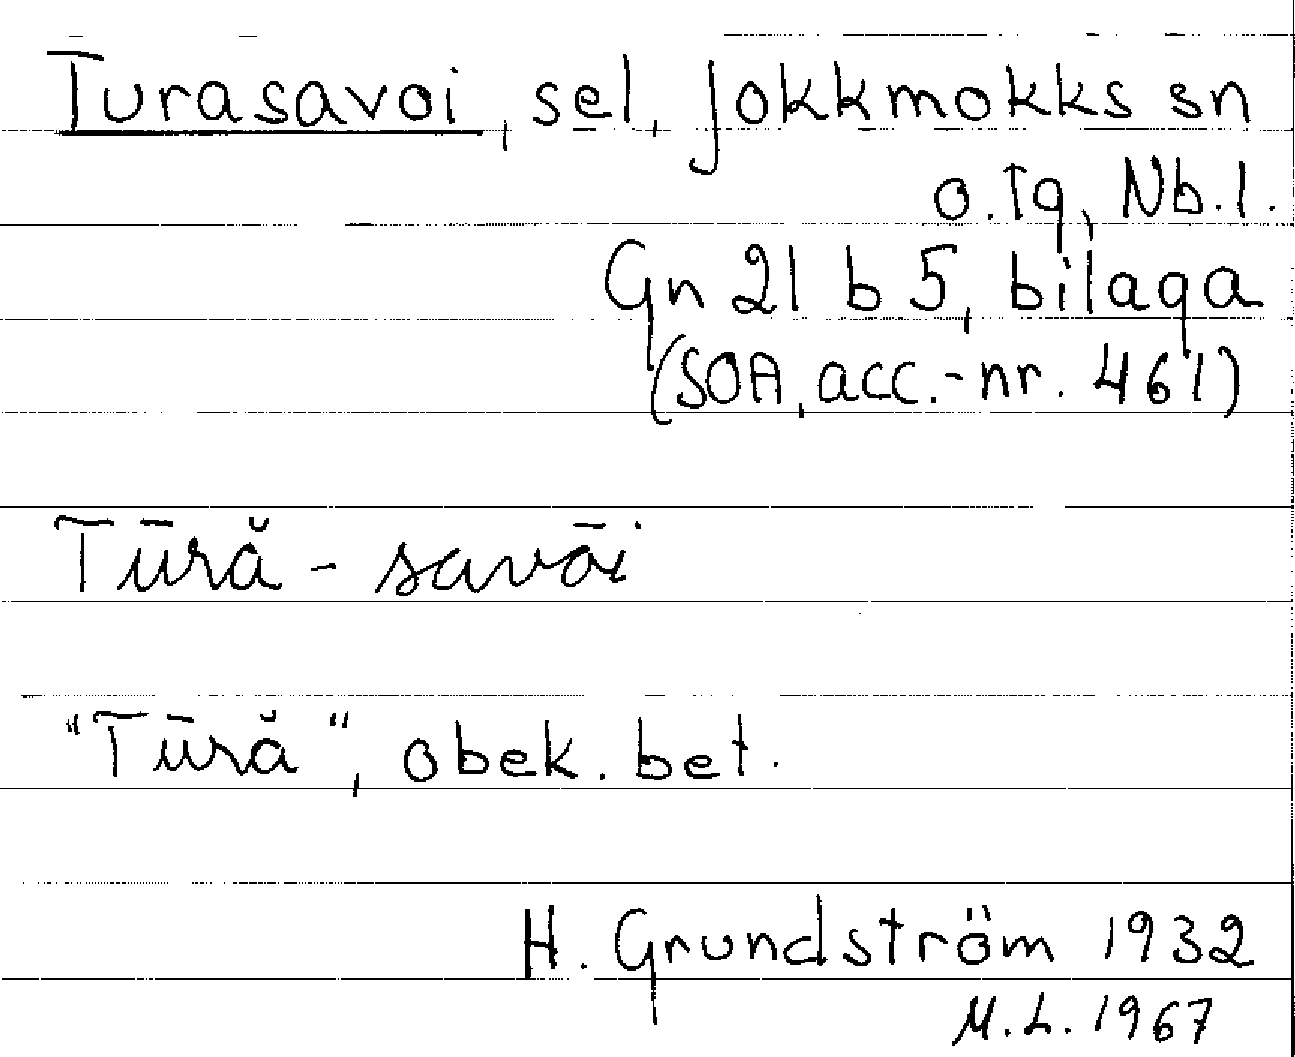 Turasavoi, sel, Jokkmokks sn
o. tg, Nb. l.
Gn 21 b 5, bilaga
(SOA, acc.-nr. 461)
Tūră - savōi
"Tūră", obek. bet.
H. Grundström 1932
M. L. 1967